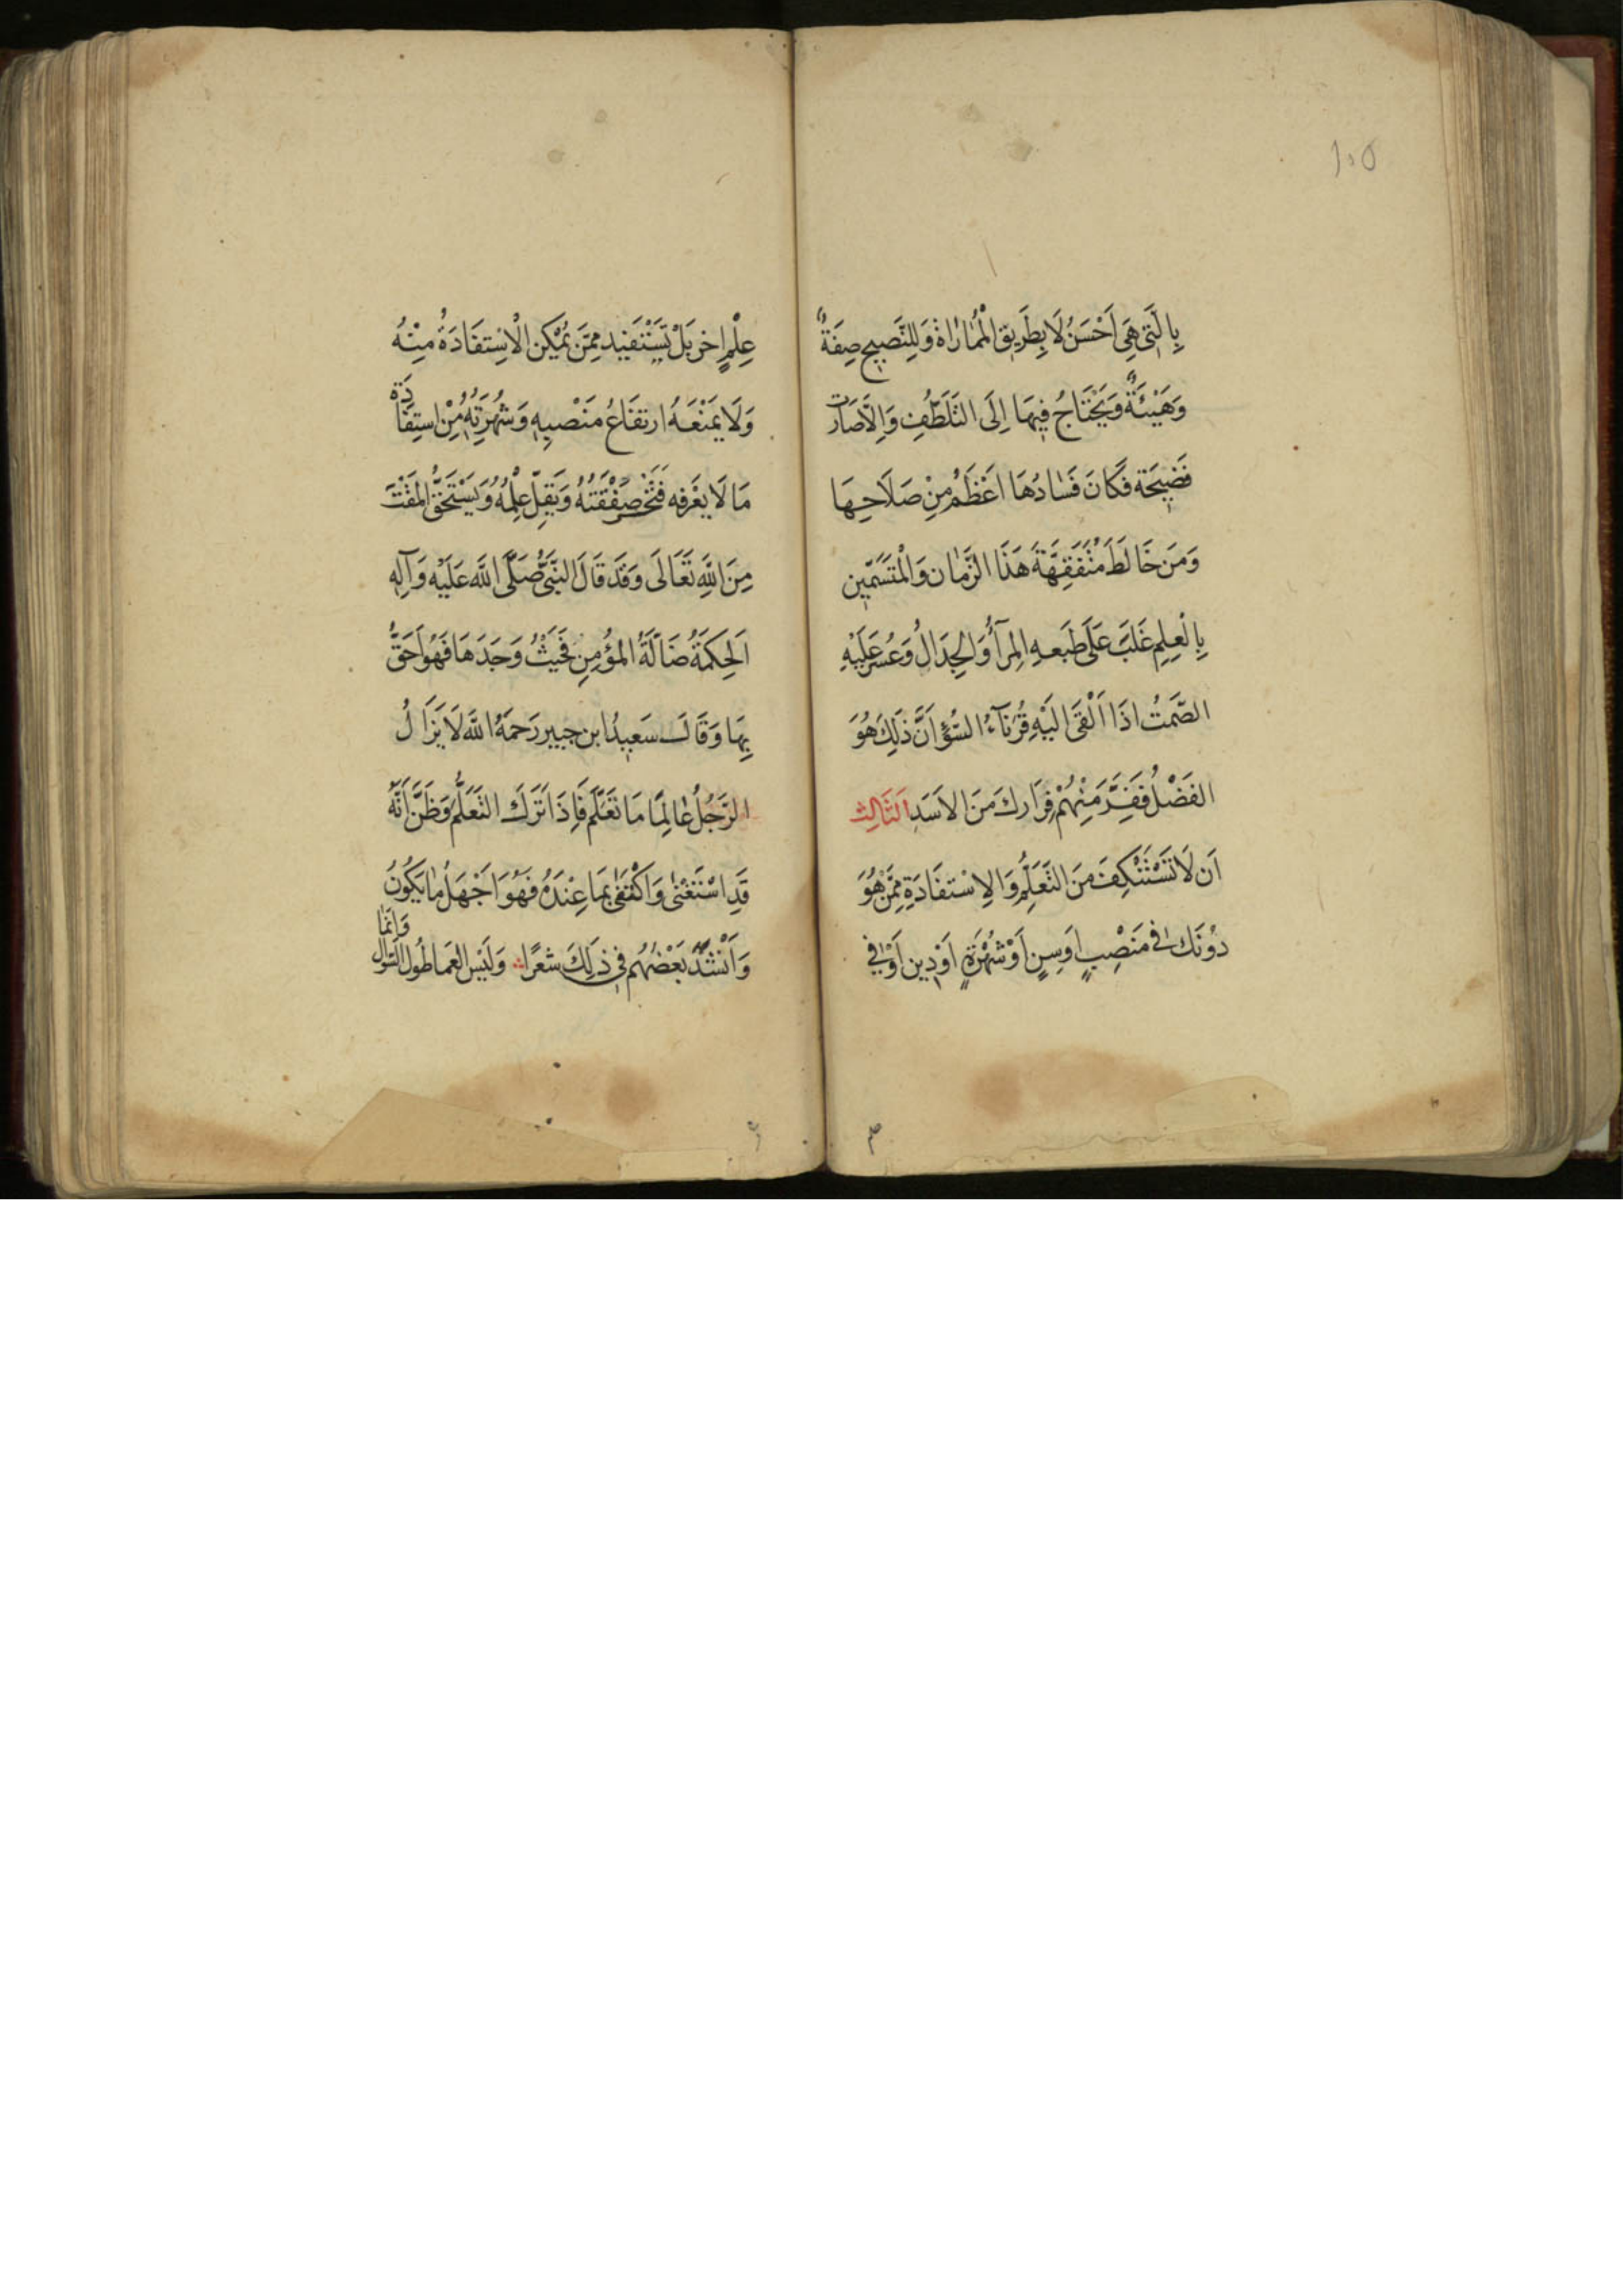 ١٠٥
بِالَّتِي هِيَ اَحْسَنُ لَا بِطَرِيقِ الْمُمَارَاةِ وَلِلنَّصِيحِ صِفَةٌ
وَهَيْئَةٌ وَيَحْتَاجُ فِيهَا اِلَى التَّلَطُّفِ وَاِلَّا صَارَت
فَضِيحَة فَكَانَ فَسَادُهَا اَعْظَمُ مِنْ صَلَاحِهَا
وَمَنْ خَالَطَ مُتَفَقِّهَةَ هَذَا الزَّمَان وَالْمُتَسَمِّين
بِالْعِلِم غَلَبَ عَلَى طَبَعِهِ الِمرَآءُ وَالْجِدَالُ وَعُسَر عَلَيْهِ
الصَّمتُ اذَا اَلْقَى الَيْهِ قُرَنَآءُ السُّؤِ اَنَّ ذَلِكَ هُوَ
الفَضْلُ فَفِرَّ مَنِهُمْ فِرَارك مَنَ الاَسَدِ اَلثَالِث
اَن لَا تَسْتَنْكِفَ مَنَ التَّعَلُّمِ وَالاِسْتفَادَةِ مِمَّنْ هُوَ
دُوْنَك فى مَنَصْبٍ اَوسِنٍ اَوْ شُهْرَةٍ اَوْدِينٍ اَوْ فِي
عِلْمٍ اخر بَلْ تَسْتَفيد مِمَّن يُمْكِن الْاسْتفَادَةُ مِنْهُ
وَلَا يَمَنْعَهُ ارتفَاعُ مَنْصبِهِ وَشُهْرَتِهِ مِنْ استِفَادَة
مَا لَا يعَرفه فَتَخْسَر صَفْقَتُهُ وَيَقِلّ عِلْمُهُ وَيَسْتَحَقُّ المَقْتَ
مِنَ اللَّهِ تَعَالَى وَقَدَ قَالَ النَّبَيُّ صَلَّى اللَّه عَلَيْهِ وَآلِهِ
اَلحِكَمَةُ ضَالَّةُ المؤُمِنِ فَحَيْثُ وَجَدَهَا فَهُوَ اَحَقُّ
بِهَا وَقَالَ سَعِيدُ ابن جبير رَحمَهُ اللَّه لَا يَزَالُ
الرَّجُلُ عَالِمًا مَا تَعَلَّم فَاِذَا تَرَكَ التَعَلُّمَ وَظَنَّ اَنَّهُ
قَدِ اسْتَغْنَى وَاَكْتَفَى بِمَا عِنْدَهُ فَهُوَ اَجْهَلُ مَا يَكُونُ
وَاَنْشَدَ بَعْضُهُم فِي ذَلِكَ شعًرا وَلَيْسَ العَمَا طُولُ السُّؤال وَاِنَّمَا